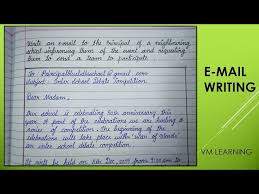 Write an e-mail to the Principal of a neighbouring
school informing them of the event and requesting
them to send a team to participate.
To : Principalbluebellsschool@gmail.com
Subject : Inter School Debate Competition.
Dear Madam,
Our school is celebrating 50th anniversary this
year. As part of the celebrations we are having a
series of competition. The beginning of the
celebrations will take place with 'War of Words'
an inter school debate competition.
It will be held on 5th Dec, 2019 from 9:30 am to
E-MAIL
WRITING
VM LEARNING